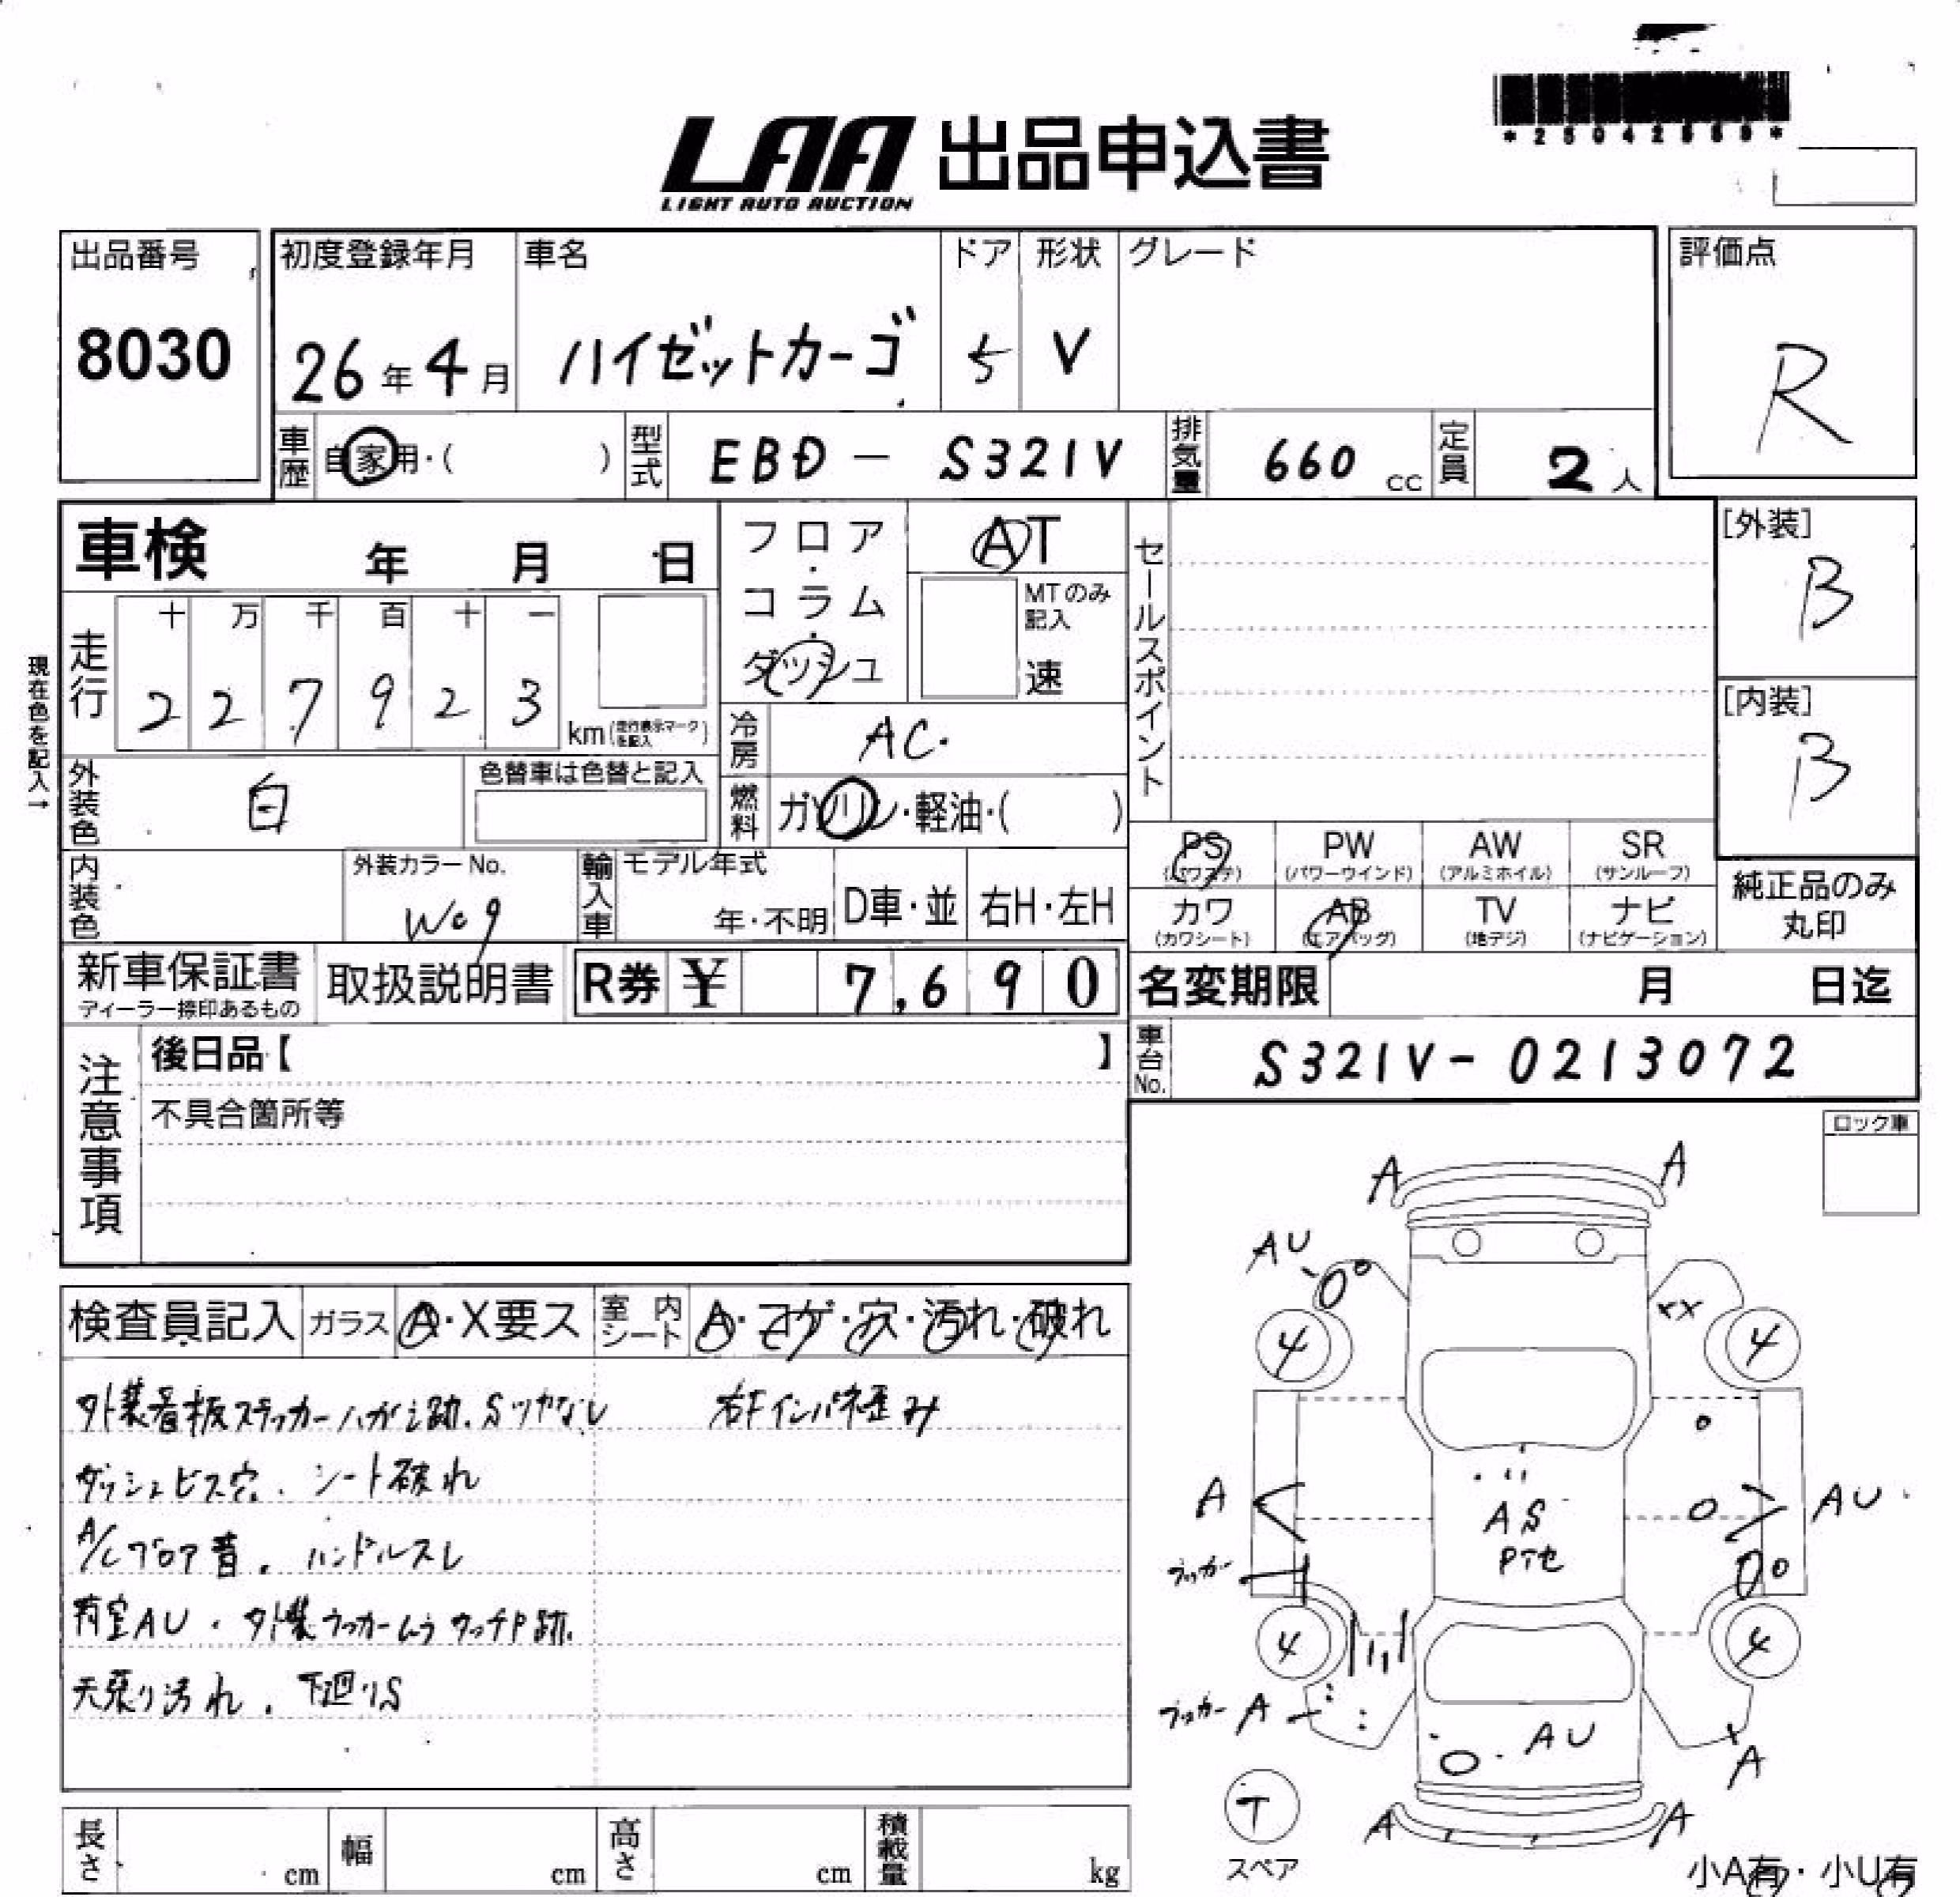 *25042569*
LAA 出品申込書
LIGHT AUTO AUCTION
出品番号
8030
初度登録年月
26年4月
車名
ハイゼットカーゴ
ドア
5
形状
V
グレード
評価点
R
車歴 自家用・( )
型式 EBD - S321V
排気量 660 cc
定員 2人
車検 年 月 日
フロア・コラム・ダッシュ
AT
MTのみ記入
速
セールスポイント
[外装]
B
[内装]
B
現在色を記入→
走行
十 万 千 百 十 一
2 2 7 9 2 3
km(走行表示マークを記入)
冷房 AC.
燃料 ガソリン・軽油・( )
外装色 白
色替車は色替と記入
内装色
外装カラーNo.
W09
輸入車
モデル年式
年・不明
D車・並
右H・左H
PS
(パワステ)
PW
(パワーウインド)
AW
(アルミホイル)
SR
(サンルーフ)
カワ
(カワシート)
AB
(エアバッグ)
TV
(地デジ)
ナビ
(ナビゲーション)
純正品のみ
丸印
新車保証書
ディーラー捺印あるもの
取扱説明書
R券 ¥ 7,690
名変期限 月 日迄
車台No. S321V-0213072
注意事項
後日品【 】
不具合箇所等
ロック車
検査員記入 ガラス A・X要ス 室内シート A・コゲ・穴・汚れ・破れ
外装看板ステッカーハガシ跡.Sツヤなし 右Fインパネ歪み
ダッシュビス穴. シート破れ
A/Cブロア音. ハンドルスレ
荷室AU. 外装ラッカームラタッチP跡.
天張り汚れ. 下廻りS
A A
AU
xx
4 4
A
AU
AS
Pアセ
ラッカー
4 4
ラッカー A
AU
A
A A
T
スペア
小A有・小U有
長さ cm
幅 cm
高さ cm
積載量 kg